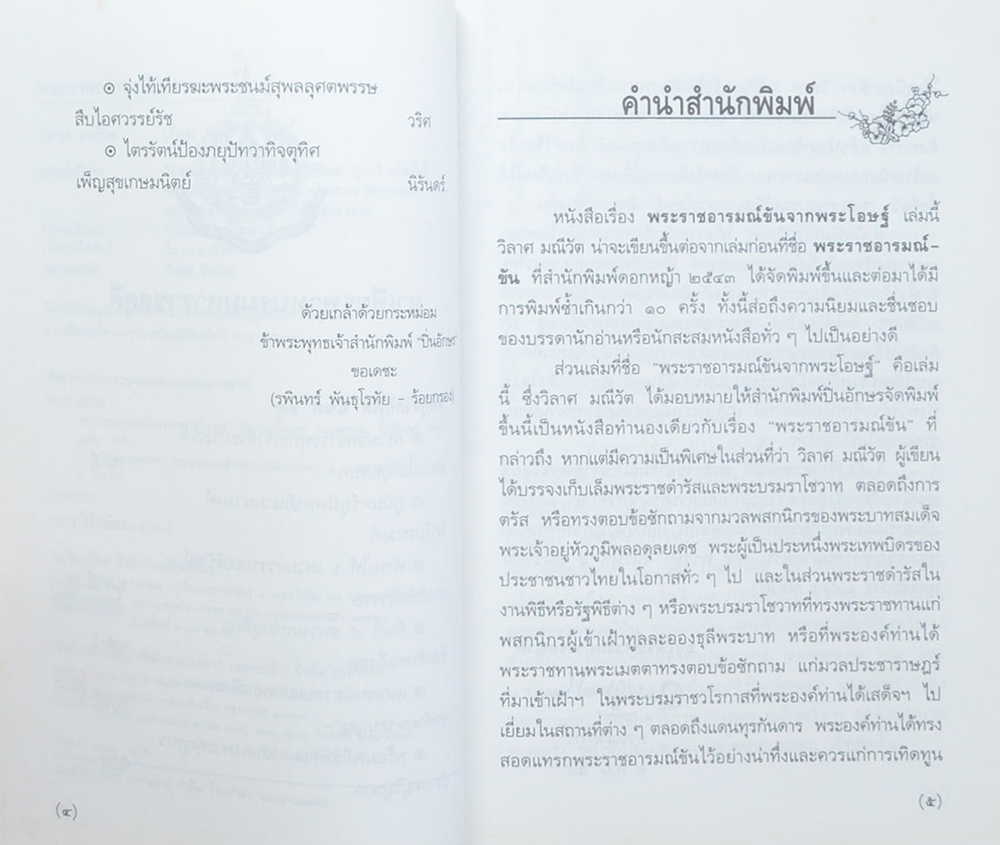 ๏ จุ่งไท้เทียรฆะพระชนม์สุพลลุศตพรรษ
สืบไอศวรรย์รัช วริศ
๏ ไตรรัตน์ป้องภยุปัทวาทิจตุทิศ
เพ็ญสุขเกษมนิตย์ นิรันดร์.
ด้วยเกล้าด้วยกระหม่อม
ข้าพระพุทธเจ้าสำนักพิมพ์ "ปิ่นอักษร
ขอเดชะ
(รพินทร์ พันธุโรทัย - ร้อยกรอง)
(๔)
คำนำสำนักพิมพ์
หนังสือเรื่อง พระราชอารมณ์ขันจากพระโอษฐ์ เล่มนี้
วิลาศ มณีวัต น่าจะเขียนขึ้นต่อจากเล่มก่อนที่ชื่อ พระราชอารมณ์-
ขัน ที่สำนักพิมพ์ดอกหญ้า ๒๕๔๓ ได้จัดพิมพ์ขึ้นและต่อมาได้มี
การพิมพ์ซ้ำเกินกว่า ๑๐ ครั้ง ทั้งนี้ส่อถึงความนิยมและชื่นชอบ
ของบรรดานักอ่านหรือนักสะสมหนังสือทั่ว ๆ ไปเป็นอย่างดี
ส่วนเล่มที่ชื่อ "พระราชอารมณ์ขันจากพระโอษฐ์" คือเล่ม
นี้ ซึ่งวิลาศ มณีวัต ได้มอบหมายให้สำนักพิมพ์ปิ่นอักษรจัดพิมพ์
ขึ้นนี้เป็นหนังสือทำนองเดียวกับเรื่อง "พระราชอารมณ์ขัน" ที่
กล่าวถึง หากแต่มีความเป็นพิเศษในส่วนที่ว่า วิลาศ มณีวัต ผู้เขียน
ได้บรรจงเก็บเล็มพระราชดำรัสและพระบรมราโชวาท ตลอดถึงการ
ตรัส หรือทรงตอบข้อซักถามจากมวลพสกนิกรของพระบาทสมเด็จ
พระเจ้าอยู่หัวภูมิพลอดุลยเดช พระผู้เป็นประหนึ่งพระเทพบิดรของ
ประชาชนชาวไทยในโอกาสทั่ว ๆ ไป และในส่วนพระราชดำรัสใน
งานพิธีหรือรัฐพิธีต่าง ๆ หรือพระบรมราโชวาทที่ทรงพระราชทานแก่
พสกนิกรผู้เข้าเฝ้าทูลละอองธุลีพระบาท หรือที่พระองค์ท่านได้
พระราชทานพระเมตตาทรงตอบข้อซักถาม แก่มวลประชาราษฎร์
ที่มาเข้าเฝ้าฯ ในพระบรมราชวโรกาสที่พระองค์ท่านได้เสด็จฯ ไป
เยี่ยมในสถานที่ต่าง ๆ ตลอดถึงแดนทุรกันดาร พระองค์ท่านได้ทรง
สอดแทรกพระราชอารมณ์ขันไว้อย่างน่าทึ่งและควรแก่การเทิดทูน
(๕)